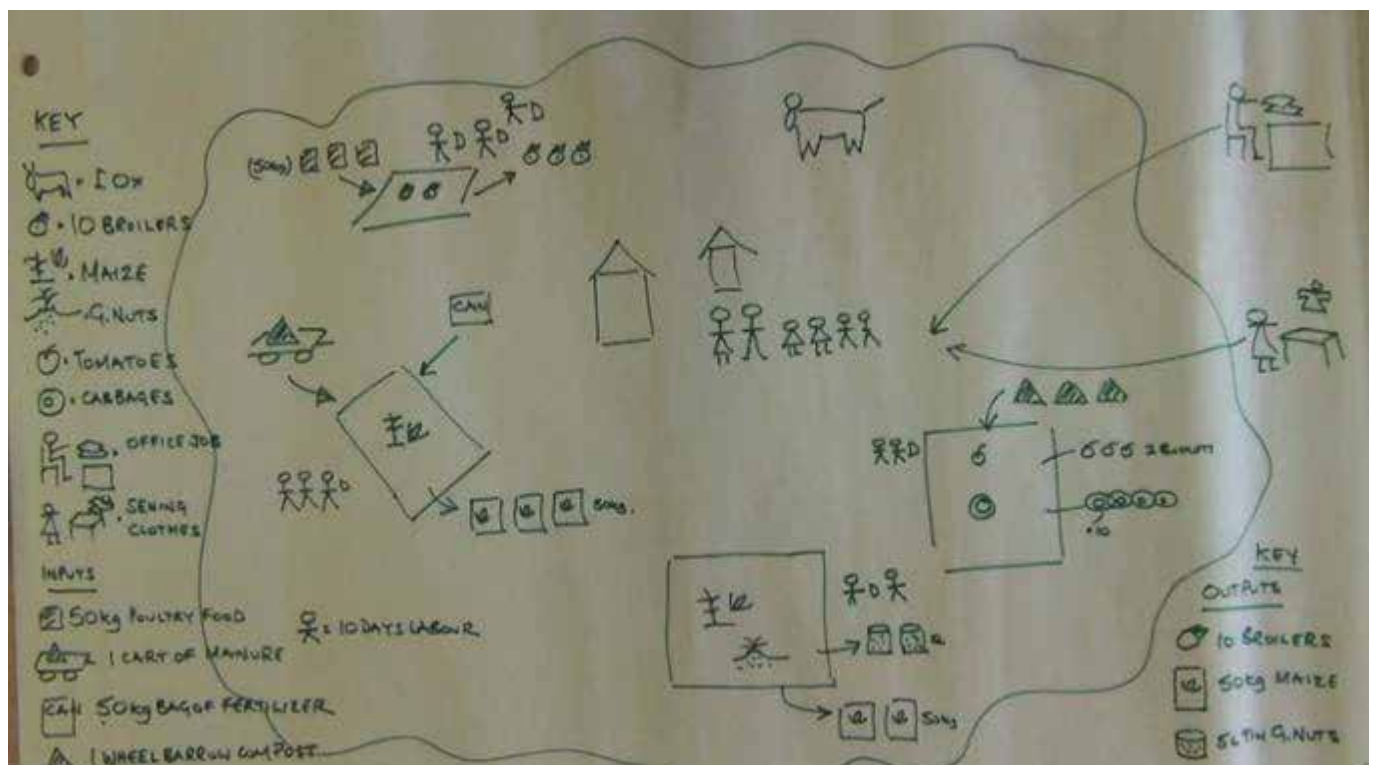 KEY
1 OX
10 BROILERS
MAIZE
G.NUTS
TOMATOES
CABBAGES
OFFICE JOB
SEWING
CLOTHES
INPUTS
50kg POULTRY FOOD
1 CART OF MANURE
CAN 50kg BAG OF FERTILIZER
1 WHEEL BARROW COMPOST
= 10 DAYS LABOUR
(50kg)
D D D
CAN
D
50kg.
D
10
D
50kg
KEY
OUTPUTS
10 BROILERS
50kg MAIZE
5L TIN G.NUTS